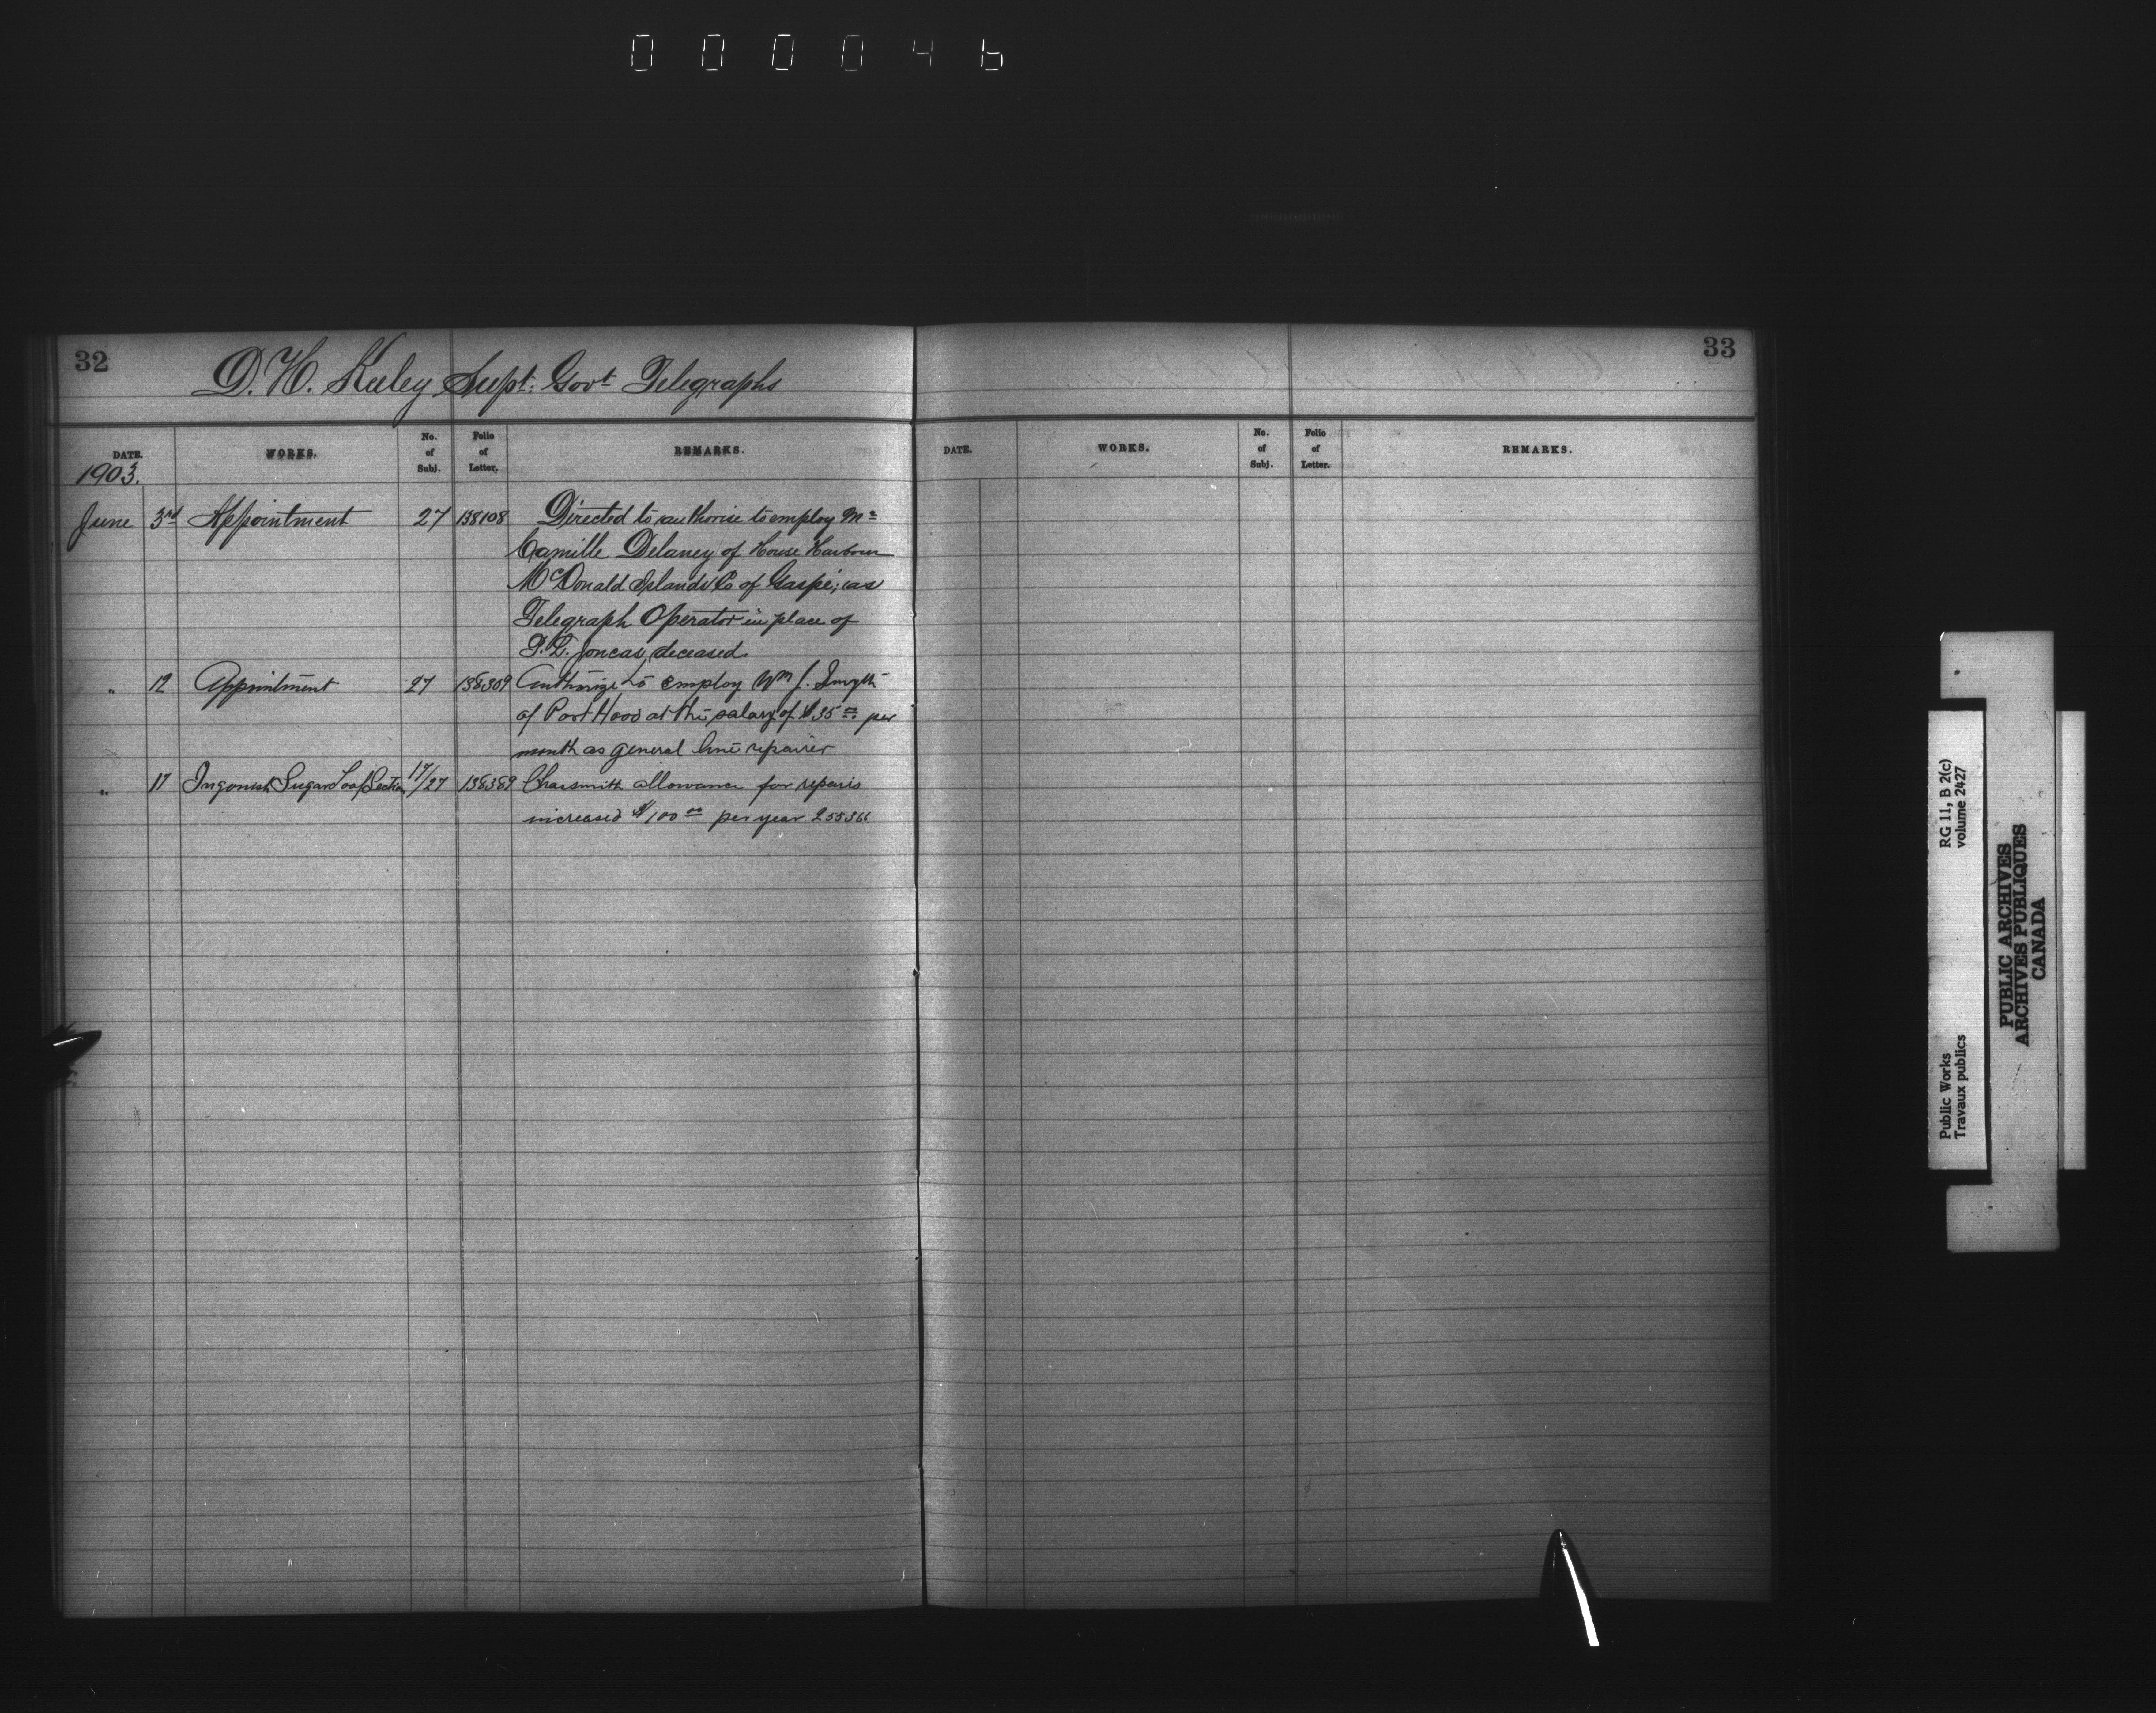 000046
32
D. H. Keeley Supt: Govt Telegraphs
DATE. WORKS. No. of Subj. Folio of Letter. REMARKS.
1903.
June 3rd Appointment 27 138108 Directed to authorise to employ Mr
Camille Delaney of House Harbour
McDonald Islands Co of Gaspé; as
Telegraph Operator in place of
Joncas, deceased.
" 12 Appointment 27 138309 Authorize to employ Wm J. Smyth
of Port Hood at the salary of $35 00 per
month as general line repairer
" 17 Ingonish Sugar Loaf Section 17/27 138389 allowance for repairs
increased $100 00 per year 255366
33
DATE. WORKS. No. of Subj. Folio of Letter. REMARKS.
Public Works
Travaux publics
RG 11, B 2(c)
volume 2427
PUBLIC ARCHIVES
ARCHIVES PUBLIQUES
CANADA